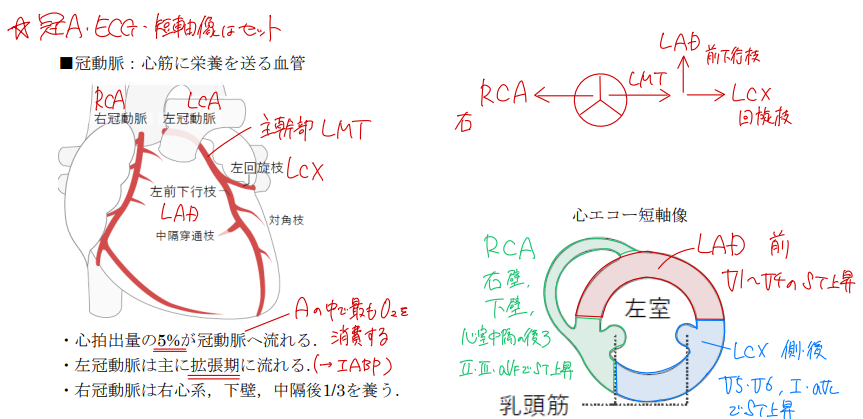 ☆ 冠A・ECG・短軸像はセット
■冠動脈：心筋に栄養を送る血管
RCA
LCA
右冠動脈
左冠動脈
主幹部 LMT
左回旋枝
LCX
左前下行枝
LAD
対角枝
中隔穿通枝
Aの中で最もO₂を
消費する
・心拍出量の5%が冠動脈へ流れる．
・左冠動脈は主に拡張期に流れる．(→IABP)
・右冠動脈は右心系，下壁，中隔後1/3を養う．
LAD
前下行枝
RCA
LMT
LCX
右
回旋枝
心エコー短軸像
RCA
右壁,
下壁,
心室中隔の後ろ
Ⅱ・Ⅲ・aVFでST上昇
LAD 前
V1〜V4のST上昇
左室
LCX 側・後
V5・V6, Ⅰ・aVL
でST上昇
乳頭筋